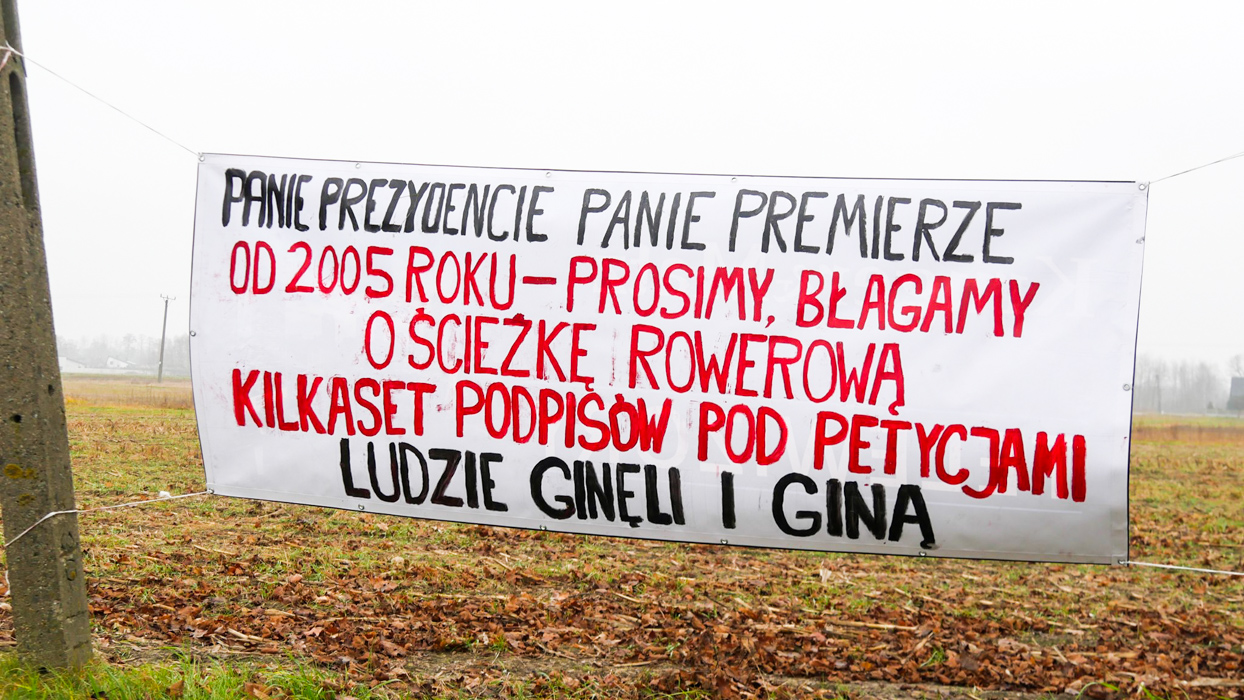 PANIE PREZYDENCIE PANIE PREMIERZE
OD 2005 ROKU - PROSIMY, BŁAGAMY
O ŚCIEŻKĘ ROWEROWĄ
KILKASET PODPISÓW POD PETYCJAMI
LUDZIE GINĘLI I GINĄ